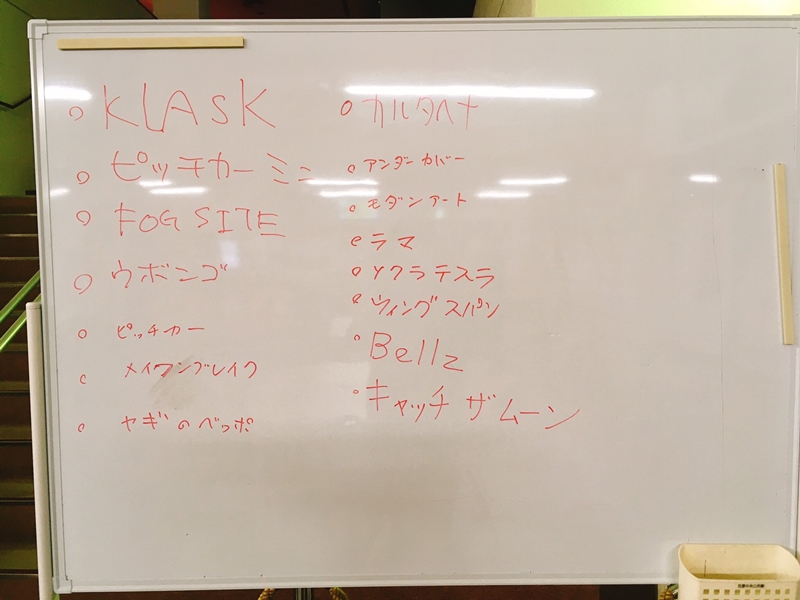 KLASK
ピッチカーミニ
FOG SITE
ウボンゴ
ピッチカー
メイクンブレイク
ヤギのベッポ
カルタヘナ
アンダーカバー
モダンアート
ラマ
ソクラテスラ
ウィングスパン
Bellz
キャッチザムーン